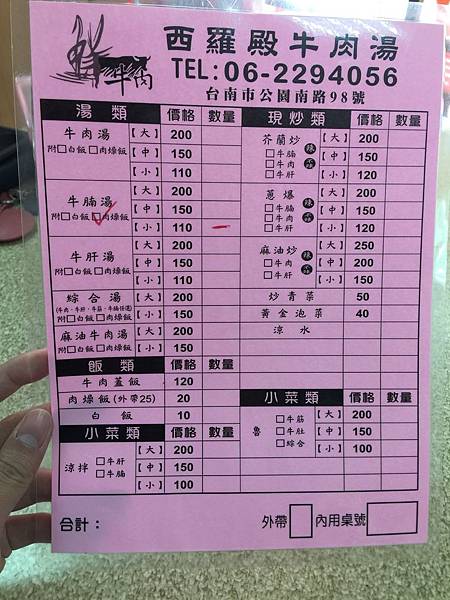 鮮牛肉
西羅殿牛肉湯
TEL:06-2294056
台南市公園南路98號
湯類 價格 數量
牛肉湯 【大】 200
附□白飯□肉燥飯 【中】 150
【小】 110
牛腩湯 【大】 200
附□白飯□肉燥飯 【中】 150
【小】 110
牛肝湯 【大】 200
附□白飯□肉燥飯 【中】 150
【小】 110
綜合湯 【大】 200
(牛肉、牛肝、牛筋、牛腩任選)
附□白飯□肉燥飯 【小】 150
麻油牛肉湯 【大】 200
附□白飯□肉燥飯 【小】 150
飯類 價格 數量
牛肉蓋飯 120
肉燥飯(外帶25) 20
白飯 10
小菜類 價格 數量
涼拌 □牛肝 □牛腩
【大】 200
【中】 150
【小】 100
現炒類 價格 數量
芥蘭炒 【大】 200
□牛腩 【中】 150
□牛肉
□牛肝 【小】 120
蔥爆 【大】 200
□牛腩 【中】 150
□牛肉
□牛肝 【小】 120
麻油炒 【大】 250
□牛肉 【中】 200
□牛肝 【小】 150
炒青菜 50
黃金泡菜 40
涼水
小菜類 價格 數量
魯 □牛筋 【大】 200
□牛肚 【中】 150
□綜合 【小】 100
合計：
外帶 內用桌號